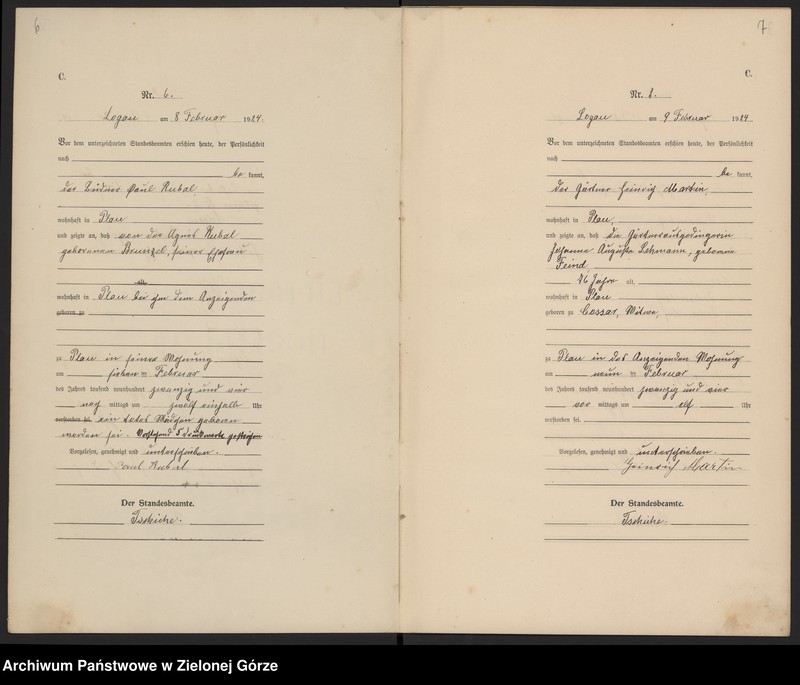 6
C.
Nr. 6.
Logau am 8 Februar 1924.
Vor dem unterzeichneten Standesbeamten erschien heute, der Persönlichkeit
nach
be kannt,
der Büdner Paul Rubal
wohnhaft in Plau
und zeigte an, daß von der Agnes Rubal
geborenen Brunzel, seiner Ehefrau
alt,
wohnhaft in Plau bei ihm dem Anzeigenden
geboren zu
zu Plau in seiner Wohnung
am sieben ten Februar
des Jahres tausend neunhundert zwanzig und vier
nach mittags um zwölf einhalb Uhr
verstorben sei. ein totes Mädchen geboren
worden sei. Vorstehend 5 Druckworte gestrichen
Vorgelesen, genehmigt und unterschrieben.
Paul Rubal
Der Standesbeamte.
Tschiche.
7
C.
Nr.
Logau am 9 Februar 1924
Vor dem unterzeichneten Standesbeamten erschien heute, der Persönlichkeit
nach
be kannt,
der Gärtner Heinrich Martin,
wohnhaft in Plau,
und zeigte an, daß die Gärtnerausgedingerin
Johanne Auguste Lehmann, geborene
Feind
76 Jahre alt,
wohnhaft in Plau
geboren zu Cossar, Witwe,
zu Plau in des Anzeigenden Wohnung
am neun ten Februar
des Jahres tausend neunhundert zwanzig und vier
vor mittags um elf Uhr
verstorben sei.
Vorgelesen, genehmigt und unterschrieben.
Heinrich Martin
Der Standesbeamte.
Tschiche.
Archiwum Państwowe w Zielonej Górze